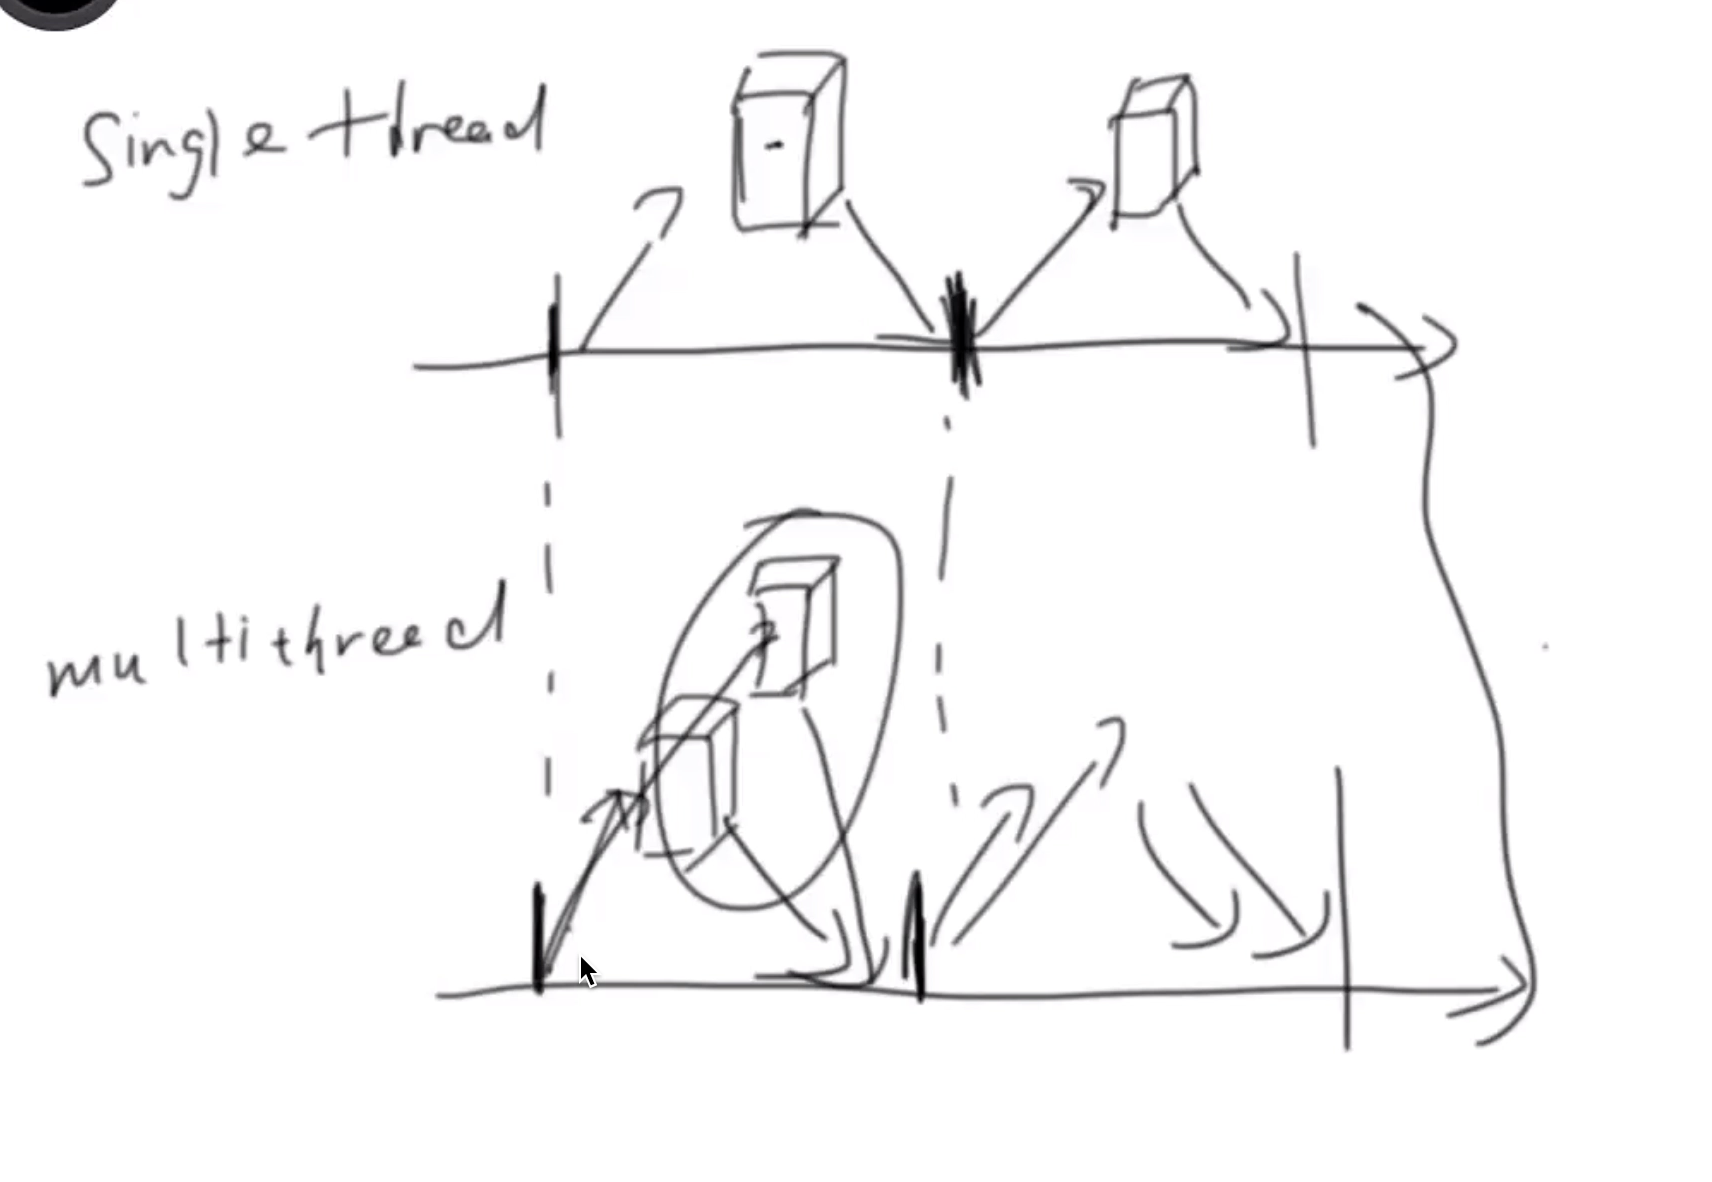 Single thread
multithread